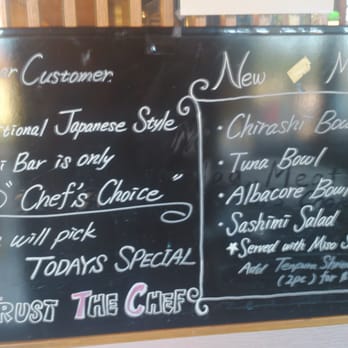 Customer
tional Japanese Style
i Bar is only
" Chef's Choice "
will pick
TODAYS SPECIAL
TRUST THE CHEF
New M
• Chirashi Bow
• Tuna Bowl
• Albacore Bowl
• Sashimi Salad
★Served with Miso S
Add Tempura Shrim
(2pc) for $